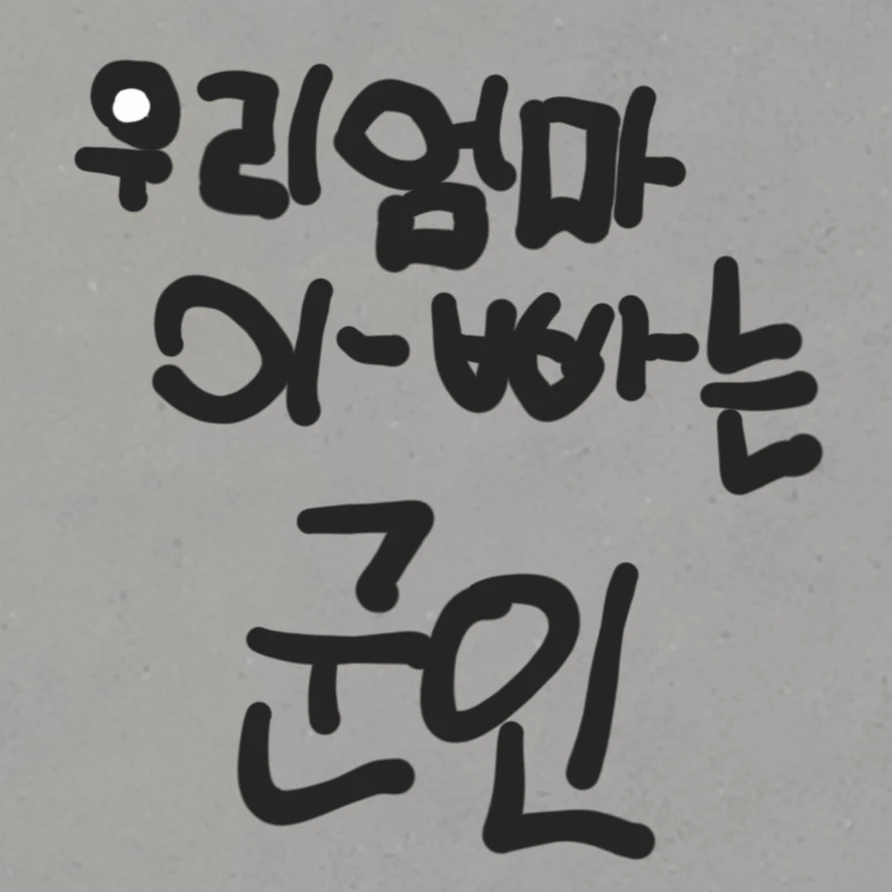 우리엄마
아빠는
군인